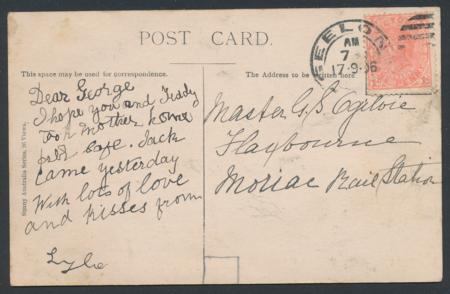 POST CARD.
This space may be used for correspondence.
The Address to be written here
Dear George
I hope you and Teddy
Mother home
safe. Jack
came yesterday
With lots of love
and kisses from
Sunny Australia Series, 36 Views.
GEELON
AM
7
17-9-06
Master G.S. Ogilvie
Moriac Rail Station